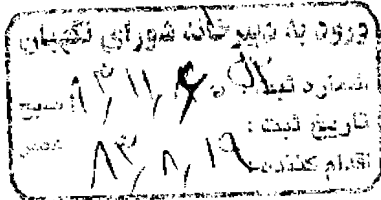 ورود به دبیرخانه شورای نگهبان
شماره ثبت: صبح
تاریخ ثبت: ۸۳,۸,۱۹ عصر
اقدام کننده: